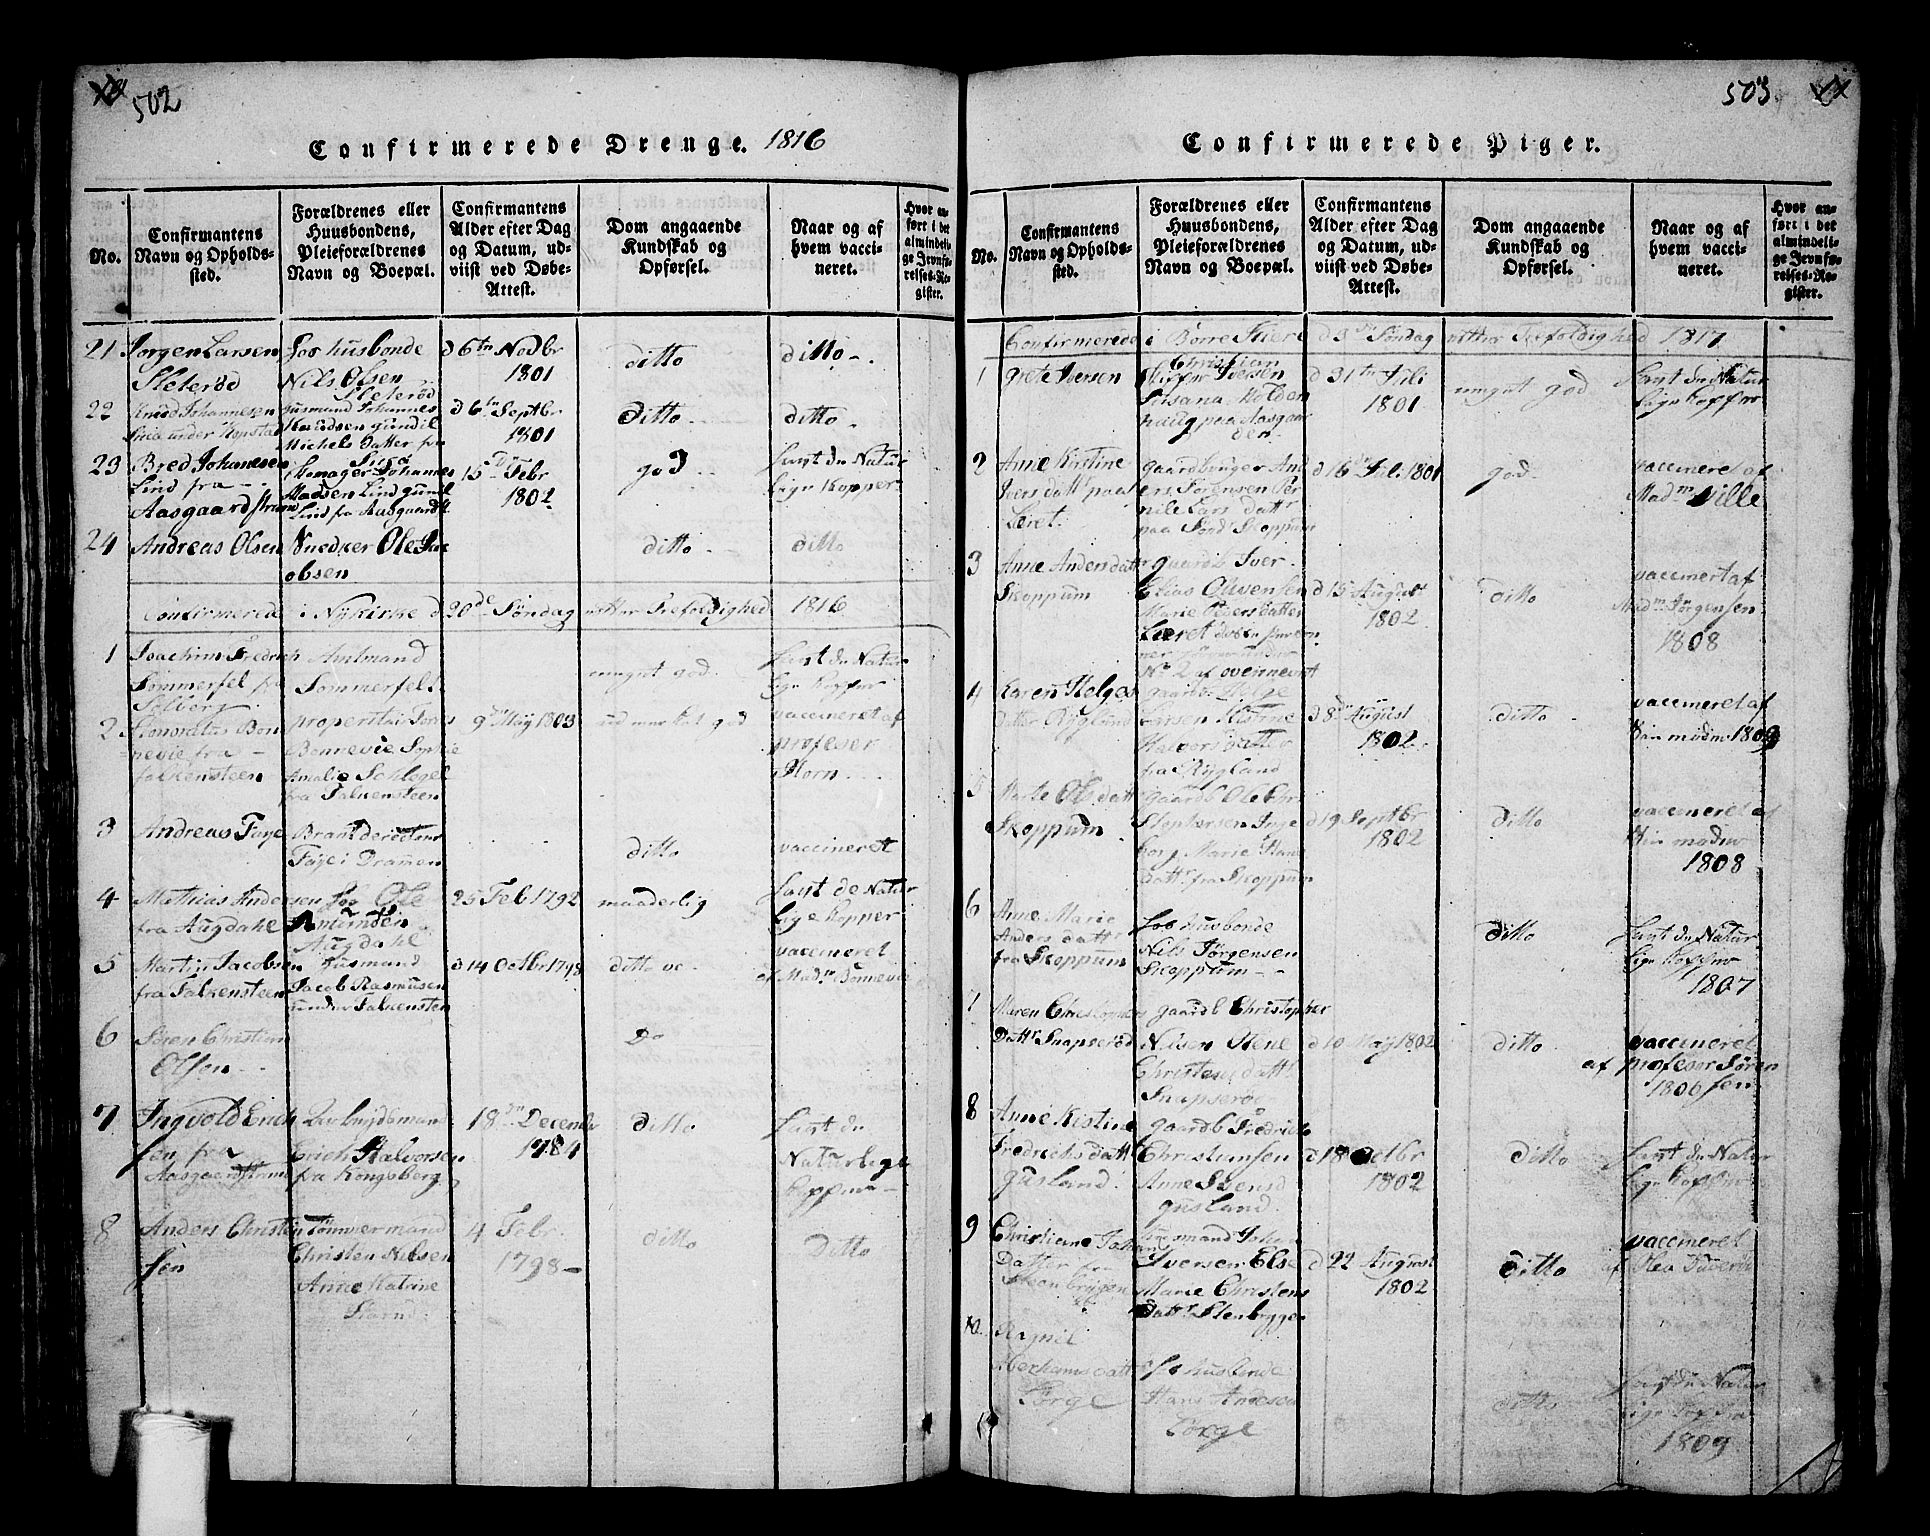 502
Confirmerede Drenge. 1816
No.
Confirmantens
Navn og Opholds-
sted.
Forældrenes eller
Huusbondens,
Pleieforældrenes
Navn og Boepæl.
Confirmantens
Alder efter Dag
og Datum, ud-
viist ved Døbe-
Attest.
Dom angaaende
Kundskab og
Opførsel.
Naar og af
hvem vacci-
neret.
Hvor an-
ført i det
almindeli-
ge Jevnfø-
relses-Re-
gister.
21 Jorgen Larsen
Sleterød
Fos husbonde
Nils Olsen
Sleterød
d 6tn Nodbr
1801
ditto
ditto
22 Knud Johannesen
under Kopstad
Husmand Johannes
Knudsen gundil
Michels Datter fra
d 6tn Septbr
1801
ditto
ditto
23 Bred Johannesen
Lind fra
Aasgaardstrand
Skomager Johannes
Madsen Lind gunil
Lind fra Aasgaardst
15 Febr
1802
god
havt de Natur
lige Kopper
24 Andreas Olsen
Snedker Ole Jac
obsen
ditto
ditto
Confirmerede i Nykirke d 20de Søndag etter Trefoldighed 1816
1 Joachim Fredrich
Sommerfel fra
Solberg
Amtmand
Sommerfelt
meget god
havt de Natur
lige Kopper
2 Honoratus Bon
nevie fra
falkensteen
properitair
Bonnevie Sophie
Amalie Schlegel
fra Falkensteen
9de May 1803
ud merket god
vaccineret af
profeser
Horn
3 Andreas Faye
Branddirecteur
Faye i Dramen
ditto
vaccineret
4 Mathias Andersen
fra Augdahl
Fos Ole
Amundsen
Augdahl
25 Feb 1792
maaderlig
havt de Natur
lige Kopper
5 Martin Jacobsen
fra Falkensteen
Husmand
Jacob Rasmusen
under Falkensten
d 14 Octbr 1798
ditto
vaccineret
af Madm Bonnevie
6 Søren Christian
Olsen
Do
7 Ingvold Erich
sen fra
Aasgaardstrand
Arbeydsmand
Erich Halvorsen
fra Kongsberg
18dn Decembr
1784
ditto
havt de
Naturlige
Kopper
8 Anders Christen
sen
Tømmermand
Christen Nielsen
Anne Katrine
4 Febr
1798
ditto
ditto
503.
Confirmerede Piger.
No.
Confirmantens
Navn og Opholds-
sted.
Forældrenes eller
Huusbondens,
Pleieforældrenes
Navn og Boepæl.
Confirmantens
Alder efter Dag
og Datum, ud-
viist ved Døbe-
Attest.
Dom angaaende
Kundskab og
Opførsel.
Naar og af
hvem vacci-
neret.
Hvor an-
ført i det
almindeli-
ge Jevnfø-
relses-Re-
gister.
Confirmerede i Børre Kirke d 3de Søndag etter Trefoldighed 1817
1 Grete Iversen
Christian
Skipper Iversen
Susana Holden
haug paa Aasgaar
den
d 31tn Juli
1801
meget god
havt de Natur
lige Kopper
2 Anne Kirstine
Ivers datt paa
Leret
gaardbruger And
ers Sørensen Per
nile Lars dattr
paa Skoppum
d 16 Juli 1801
god
vaccineret af
Madm Wille
3 Anne Andersdatt
Skoppum
gaardb Iver
Elias Olivensen
Marie Olversdatter
Leeret
No 2 af overnevnt
d 15 August
1802
ditto
vaccinert af
Madm Jørgensen
1808
4 Karen Helges
datter Rygland
gaardbr Helge
Larsen Kierstine
Halvors datter
fra Rygland
d 8de August
1802
ditto
vaccineret af
Jordmodm 1809
5 Marte Ols datt
Skoppum
gaardb Ole Chr
Stophersen Inge
borg Marie Hans
dattr fra Skoppum
d 19 Septbr
1802
ditto
vaccineret af
1808
6 Anne Marie
Anders dattr
fra Skoppum
Fos husbonde
Nils Jørgensen
Skoppum
ditto
havt de Natur
lige Kopper
1807
7 Maren Christophers
Dattr Snapserød
gaardb Christopher
Nilsen Stene
Christens dattr
Snapserød
d 10 May 1802
ditto
vaccineret
af profesor Søren
1806 sen
8 Anne Kistine
Fredrichs datt
gusland
gaardb Fredrich
Christiansen
Anne Svensd
gusland
d 18 Octbr
1802
ditto
havt de Natur
lige Kopper
9 Christiane Johans
Datter fra
Steenbrygen
Husmand Johan
Iversen Else
Marie Christens
Dattr Stenbryggen
d 22 August
1802
ditto
vaccineret
10 Ragnil
Abrahams datt
Torge
Fos husbonde
Hans Andesen
Torge
ditto
havt de Natur
lige Kopper
1809